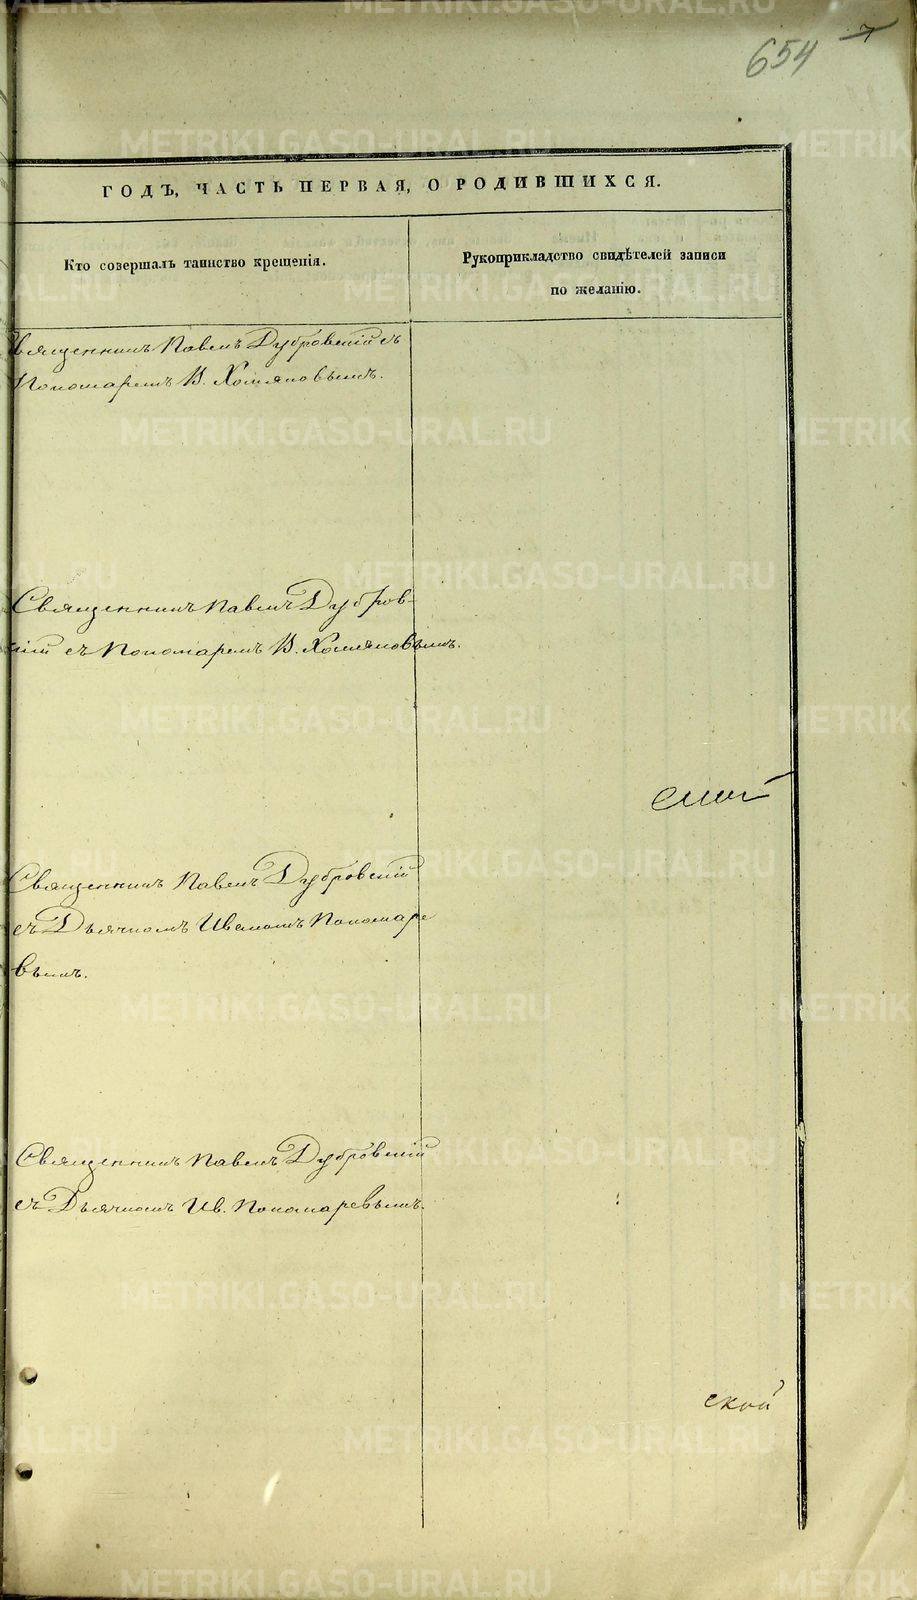 654 7
ГОДЪ, ЧАСТЬ ПЕРВАЯ, О РОДИВШИХСЯ.
Кто совершалъ таинство крещенія.
Рукоприкладство свидѣтелей записи
по желанію.
вященникъ Павелъ Дубровскій съ
Пономаремъ В. Хомяковымъ.
Священникъ Павелъ Дубров-
кій съ Пономаремъ В. Хомяковымъ.
ской
Священникъ Павелъ Дубровскій
съ Дьячкомъ Иваномъ Пономаре
вымъ.
Священникъ Павелъ Дубровскій
съ Дьячкомъ Ив. Пономаревымъ.
ской
METRIKI.GASO-URAL.RU